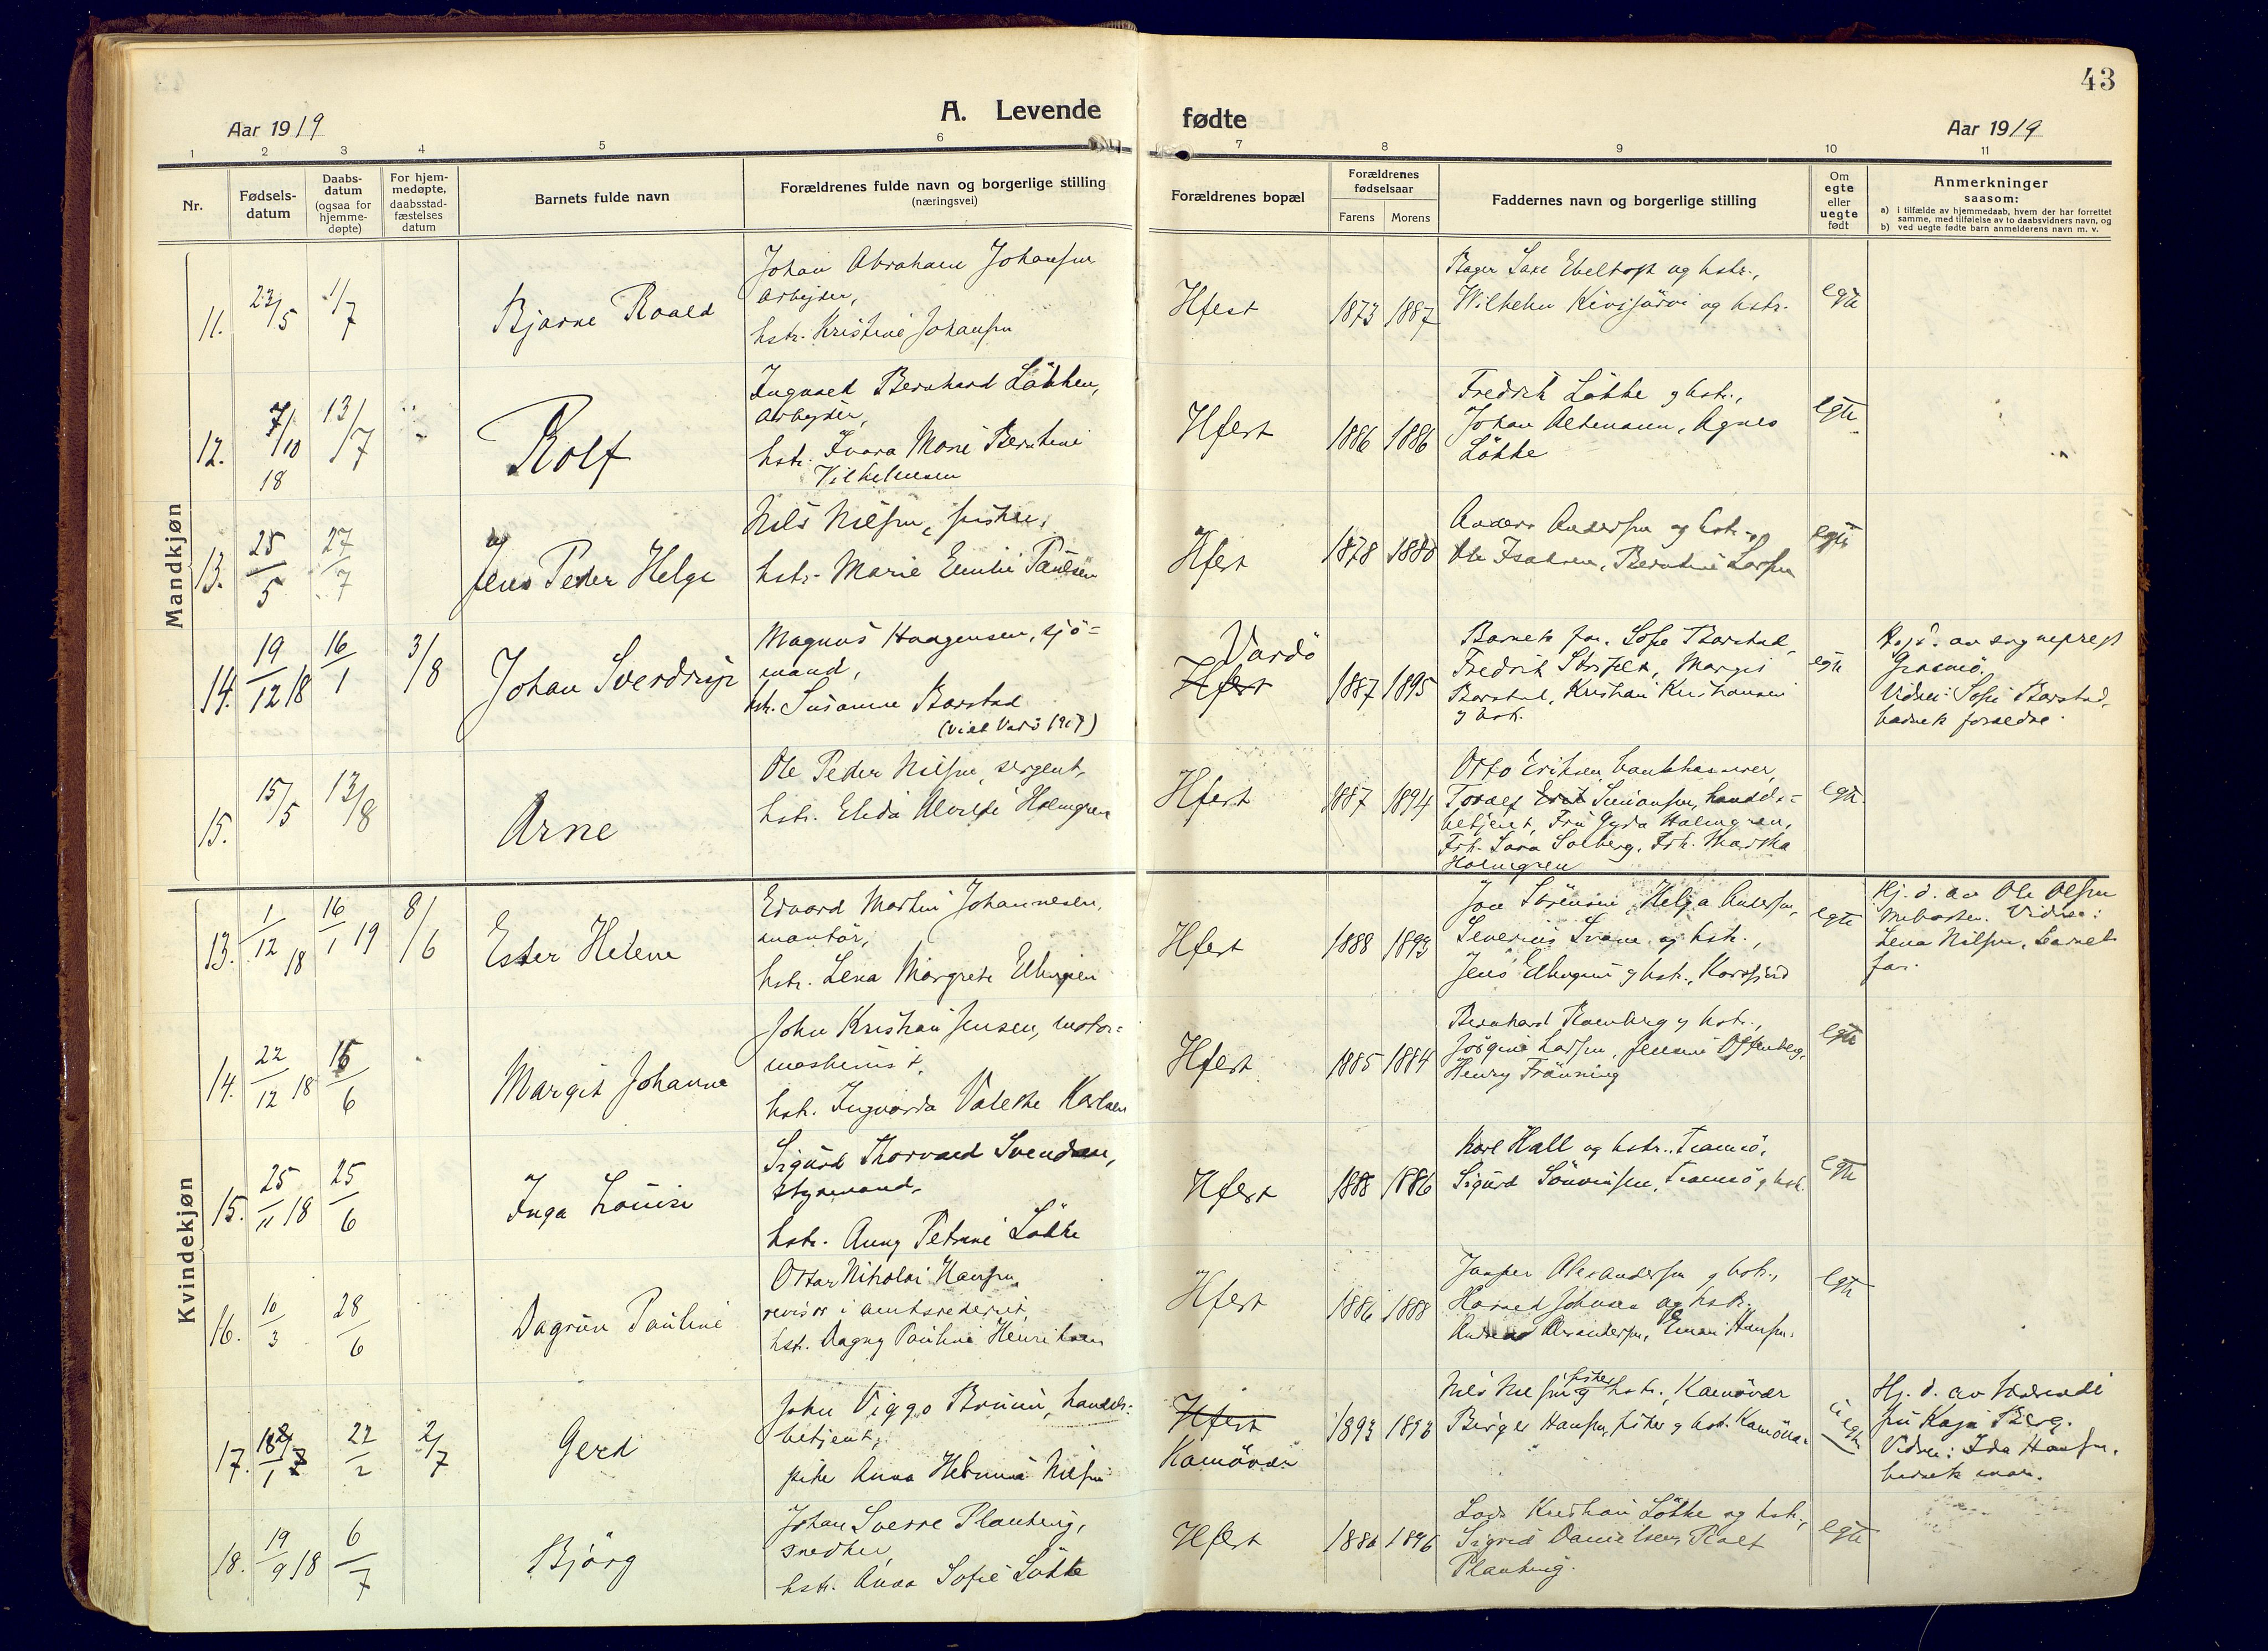 43
A. Levende fødte
Aar 1919
Aar 1919
1 2 3 4 5 6 7 8 9 10 11
Nr.
Fødsels-
datum
Daabs-
datum
(ogsaa for
hjemme-
døpte)
For hjem-
medøpte,
daabsstad-
fæstelses
datum
Barnets fulde navn
Forældrenes fulde navn og borgerlige stilling
(næringsvei)
Forældrenes bopæl
Forældrenes
fødselsaar
Farens Morens
Faddernes navn og borgerlige stilling
Om
egte
eller
uegte
født
Anmerkninger
saasom:
a) i tilfælde av hjemmedaab, hvem der har forrettet
samme, med tilføielse av to daabsvidners navn, og
b) ved uegte fødte barn anmelderens navn m. v.
Mandkjøn
11. 23/5 1/7 Bjarne Roald
Johan Abraham Johansen
arbejder,
hstr. Kristine Johansen
Hfest 1873 1887
og hstr.,
Wilhelm Kivijärvi og hstr.
egte
12. 7/10 18 13/7 Rolf
Ingvald Bernhard Løkken,
arbejder,
hstr. Ivara Marie Berntine
Vilhelmsen
Hfest 1886 1886
Fredrik Løkke og hstr.,
Johan Altmann, Agnes
Løkke
egte
13. 25/5 27/7 Jens Peder Helge
Nils Nilsen, fisker,
hstr. Marie Emilie Paulsen
Hfest 1878 1880
Anders Andersen og hstr.,
Ole Isaksen, Berntine Larsen
egte
14. 19/12 18 16/1 3/8 Johan Sverdrup
Magnus Haagensen, sjö=
mand,
hstr. Susanne Barstad
Vardö
Hfest 1887 1895
Barnets far. Sofie Barstad,
Fredrik Margit
Barstad, Kristian Kristiansen
og hstr.
egte
Hj.d. av sogneprest
Vidner: Sofie Barstad,
barnets forældre.
15. 15/5 13/8 Arne
Ole Peder Nilsen, sergent,
hstr. Elida Alvilde Holmgren
Hfest 1887 1894
Otto Eriksen, bankkasserer,
Toralf Simonsen, handels=
betjent, Fru Gyda Holmgren,
Frk. Sara Solberg, Frk. Martha
Holmgren
egte
Kvindekjøn
13. 1/12 18 16/1 19 8/6 Ester Helene
Edvard Martin Johannesen,
montör,
hstr. Lena Margrete
Hfest 1888 1893
Jon Sørensen, Helga Andersen,
Severin Svane og hstr.,
Jens og hstr., Korsfjord
egte
Hj. d. av Ole Olsen
Vidner:
Lena Nilsen, barnets
far.
14. 22/12 18 15/6 Margit Johanne
John Kristian Jensen, motor=
maskinist,
hstr. Ingvarda Valeske Karlsen
Hfest 1885 1884
Bernhard og hstr.,
Jørgine Larsen, Jensine
Henry Frønning
egte
15. 25/11 18 25/6 Inga Louise
Sigurd Thorvald Svendsen,
styrmand,
hstr. Anny Petrine Løkke
Hfest 1888 1886
Karl Hall og hstr. Tromsö,
Sigurd Tromsö og hstr.
egte
16. 10/3 28/6 Dagrun Pauline
Ottar Nikolai Hansen
revisor i amtsrederiet,
hstr. Dagny Pauline Henriksen
Hfest 1886 1888
Jasper Alexandersen og hstr.,
Harald Johnsen og hstr.
Andreas Alexandersen, Einar Hansen.
egte
17. 18/1 22/2 2/7 Gerd
John Viggo Bruun, handels=
betjent,
pike Anna Helmine Nilsen
Hfest
Kamöyvær 1893 1893
Nils Nilsen fisker og hstr., Kamöyvær
Birger Hansen, fisker og hstr. Kamöyvær
uegte
Hj. d. av
fru Kaja Berg.
Vidner: Ida Hansen,
barnets mor.
18. 19/9 18 6/7 Bjørg
Johan Sverre Planting,
snedker,
hstr. Anna Sofie Løkke
Hfest 1880 1896
Kristian Løkke og hstr.,
Sigrid Danielsen, Rolf
Planting.
egte